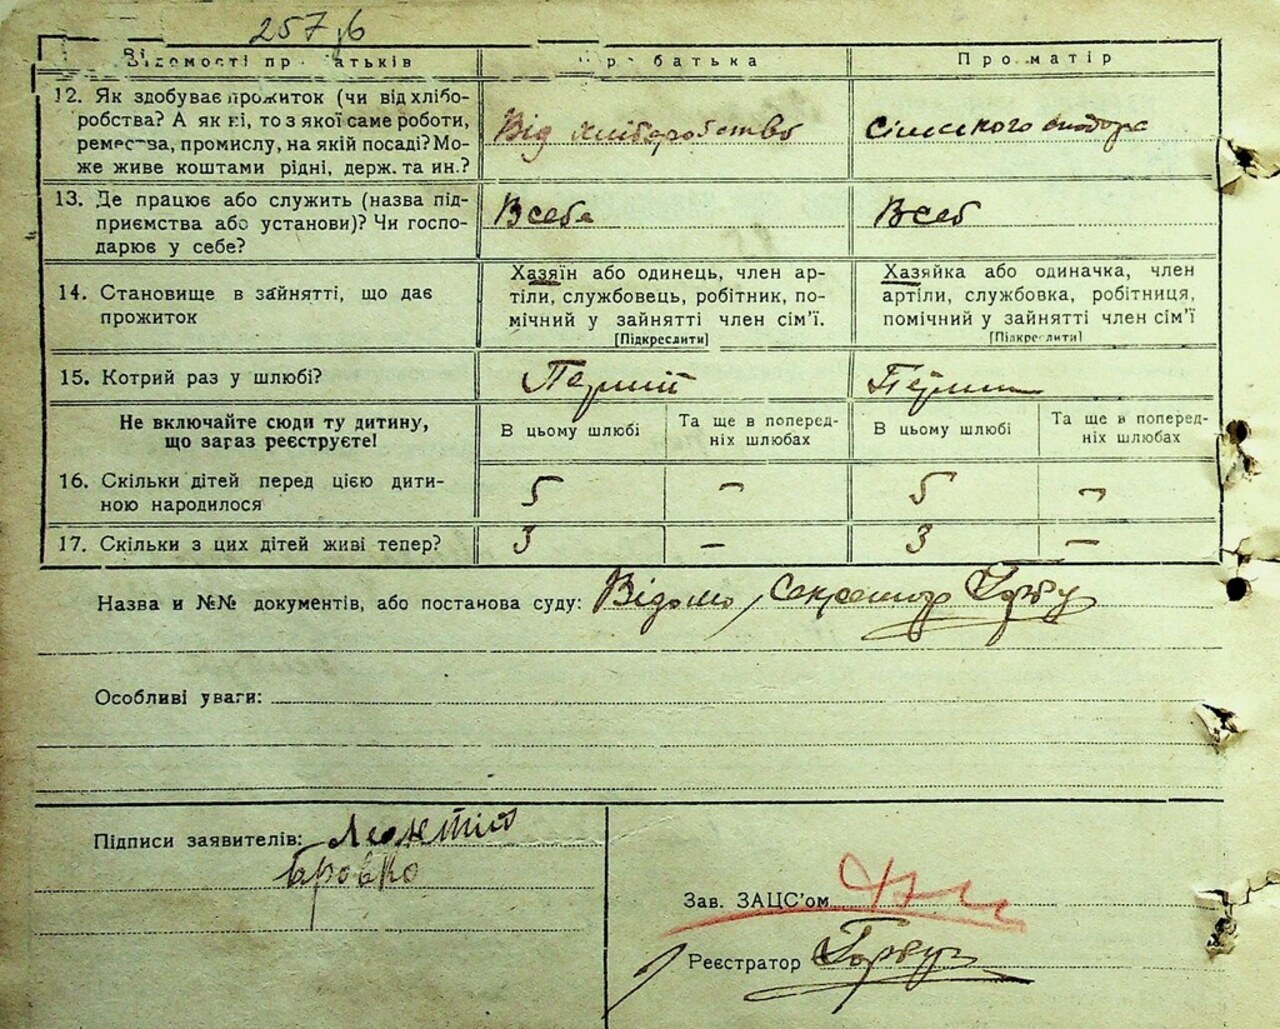 257
Відомості пр батьків
Пр батька
Про матір
12. Як здобуває прожиток (чи від хлібо-
робства? А як ні, то з якої саме роботи,
ремества, промислу, на якій посаді? Мо-
же живе коштами рідні, держ. та ин.?
Від хліборобство
сільського
13. Де працює або служить (назва під-
приємства або установи)? Чи госпо-
дарює у себе?
В себе
В себ
14. Становище в зайнятті, що дає
прожиток
Хазяїн або одинець, член ар-
тіли, службовець, робітник, по-
мічний у зайнятті член сім'ї.
[Підкреслити]
Хазяйка або одиначка, член
артіли, службовка, робітниця,
помічний у зайнятті член сім'ї
[Підкреслити]
15. Котрий раз у шлюбі?
Перший
Не включайте сюди ту дитину,
що зараз реєструєте!
В цьому шлюбі
Та ще в поперед-
ніх шлюбах
В цьому шлюбі
Та ще в поперед-
ніх шлюбах
16. Скільки дітей перед цією дити-
ною народилося
5 — 5 —
17. Скільки з цих дітей живі тепер?
3 — 3 —
Назва и №№ документів, або постанова суду: Відомо, Секретар Горбу
Особливі уваги:
Підписи заявителів: Леонтий
Бровко
Зав. ЗАЦС'ом
Реєстратор Горбуз